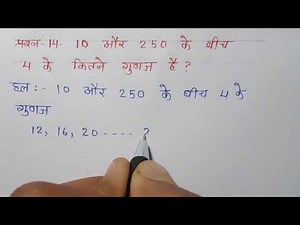 प्रश्न-14. 10 और 250 के बीच
4 के कितने गुणज है?
हल:- 10 और 250 के बीच 4 के
गुणज
12, 16, 20 ---- ?